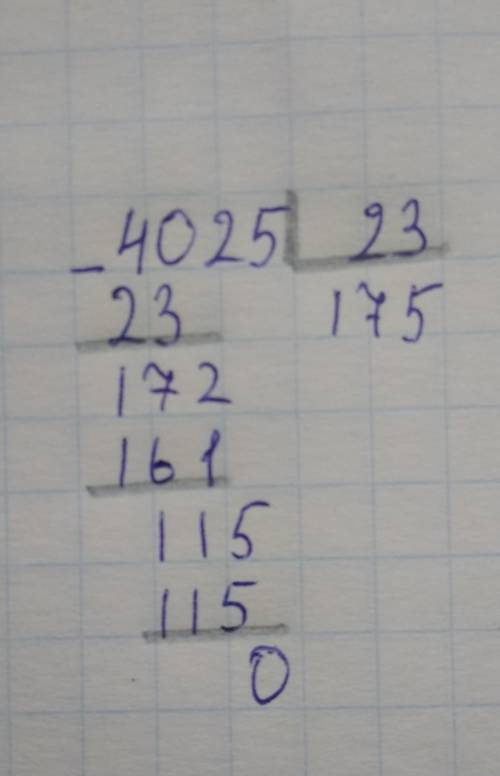 - 4025 | 23
23 175
172
161
115
115
0